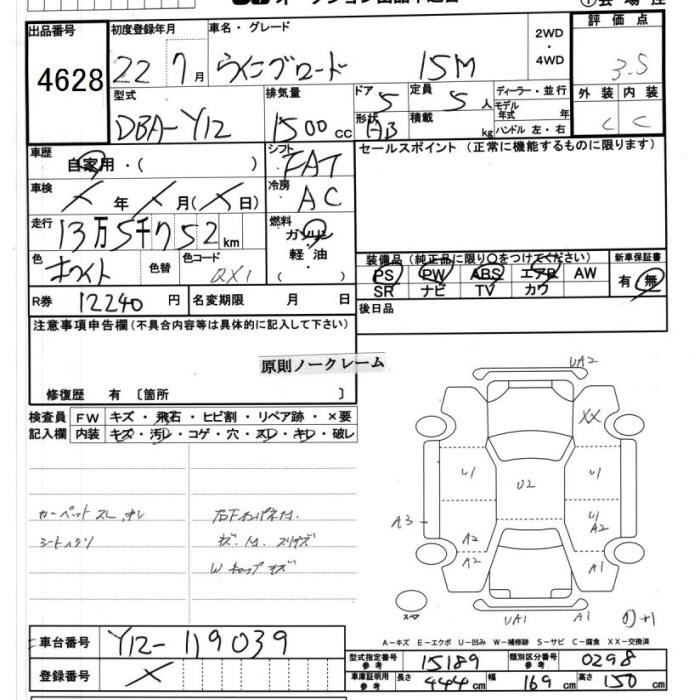 出品番号 初度登録年月 車名・グレード 2WD・4WD 評価点
4628 22 7月 ウイングロード 15M 3.5
型式 排気量 ドア 定員 ディーラー・並行 外装 内装
DBA-Y12 1500cc 5 5人 モデル年式 年 C C
形状 AB 積載 kg ハンドル 左・右
車歴 自家用・( ) シフト FAT セールスポイント (正常に機能するものに限ります)
車検 ×年×月(×日) 冷房 AC
走行 13万5千752km 燃料 ガソリン・軽油・( )
色 ホワイト 色替 色コード QX1
装備品 (純正品に限り○をつけてください) 新車保証書
PS PW ABS エアB AW 有・無
SR ナビ TV カワ
R券 12240円 名変期限 月 日 後日品
注意事項申告欄(不具合内容等は具体的に記入して下さい)
原則ノークレーム
修復歴 有〔箇所 〕
検査員 FW キズ・飛石・ヒビ割・リペア跡・×要
記入欄 内装 キズ・汚レ・コゲ・穴・スレ・キレ・破レ
カーペットスレ
W キャップキズ
UA2
XX
U1 U2 U1
A3 U1 A2
A2 A2 A1
スペア UA1 A1
A-キズ E-エクボ U-凹み W-補修跡 S-サビ C-腐食 XX-交換済
車台番号 Y12-119039
登録番号 ×
型式指定番号 参考 15189 類別区分番号 参考 0298
車庫証明用 参考 長さ 444cm 幅 169cm 高さ 150cm